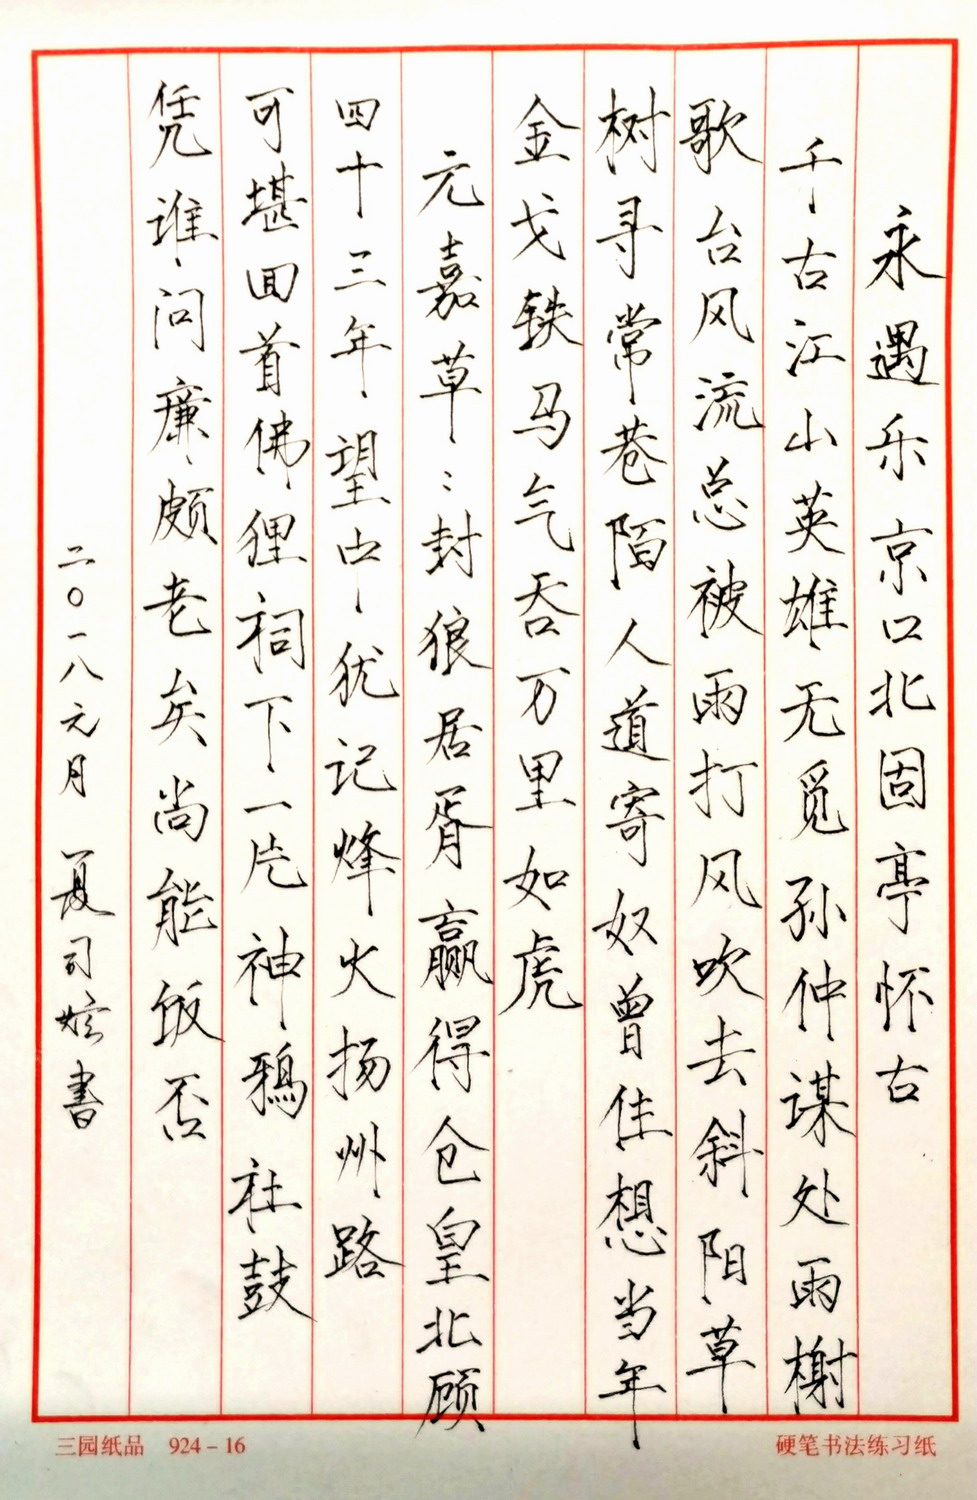 永遇乐 京口北固亭怀古
千古江山英雄无觅孙仲谋处雨榭
歌台风流总被雨打风吹去斜阳草
树寻常巷陌人道寄奴曾住想当年
金戈铁马气吞万里如虎
元嘉草:封狼居胥赢得仓皇北顾
四十三年望中犹记烽火扬州路
可堪回首佛狸祠下一片神鸦社鼓
凭谁问廉颇老矣尚能饭否
二〇一八元月 夏司書
三园纸品 924-16
硬笔书法练习纸